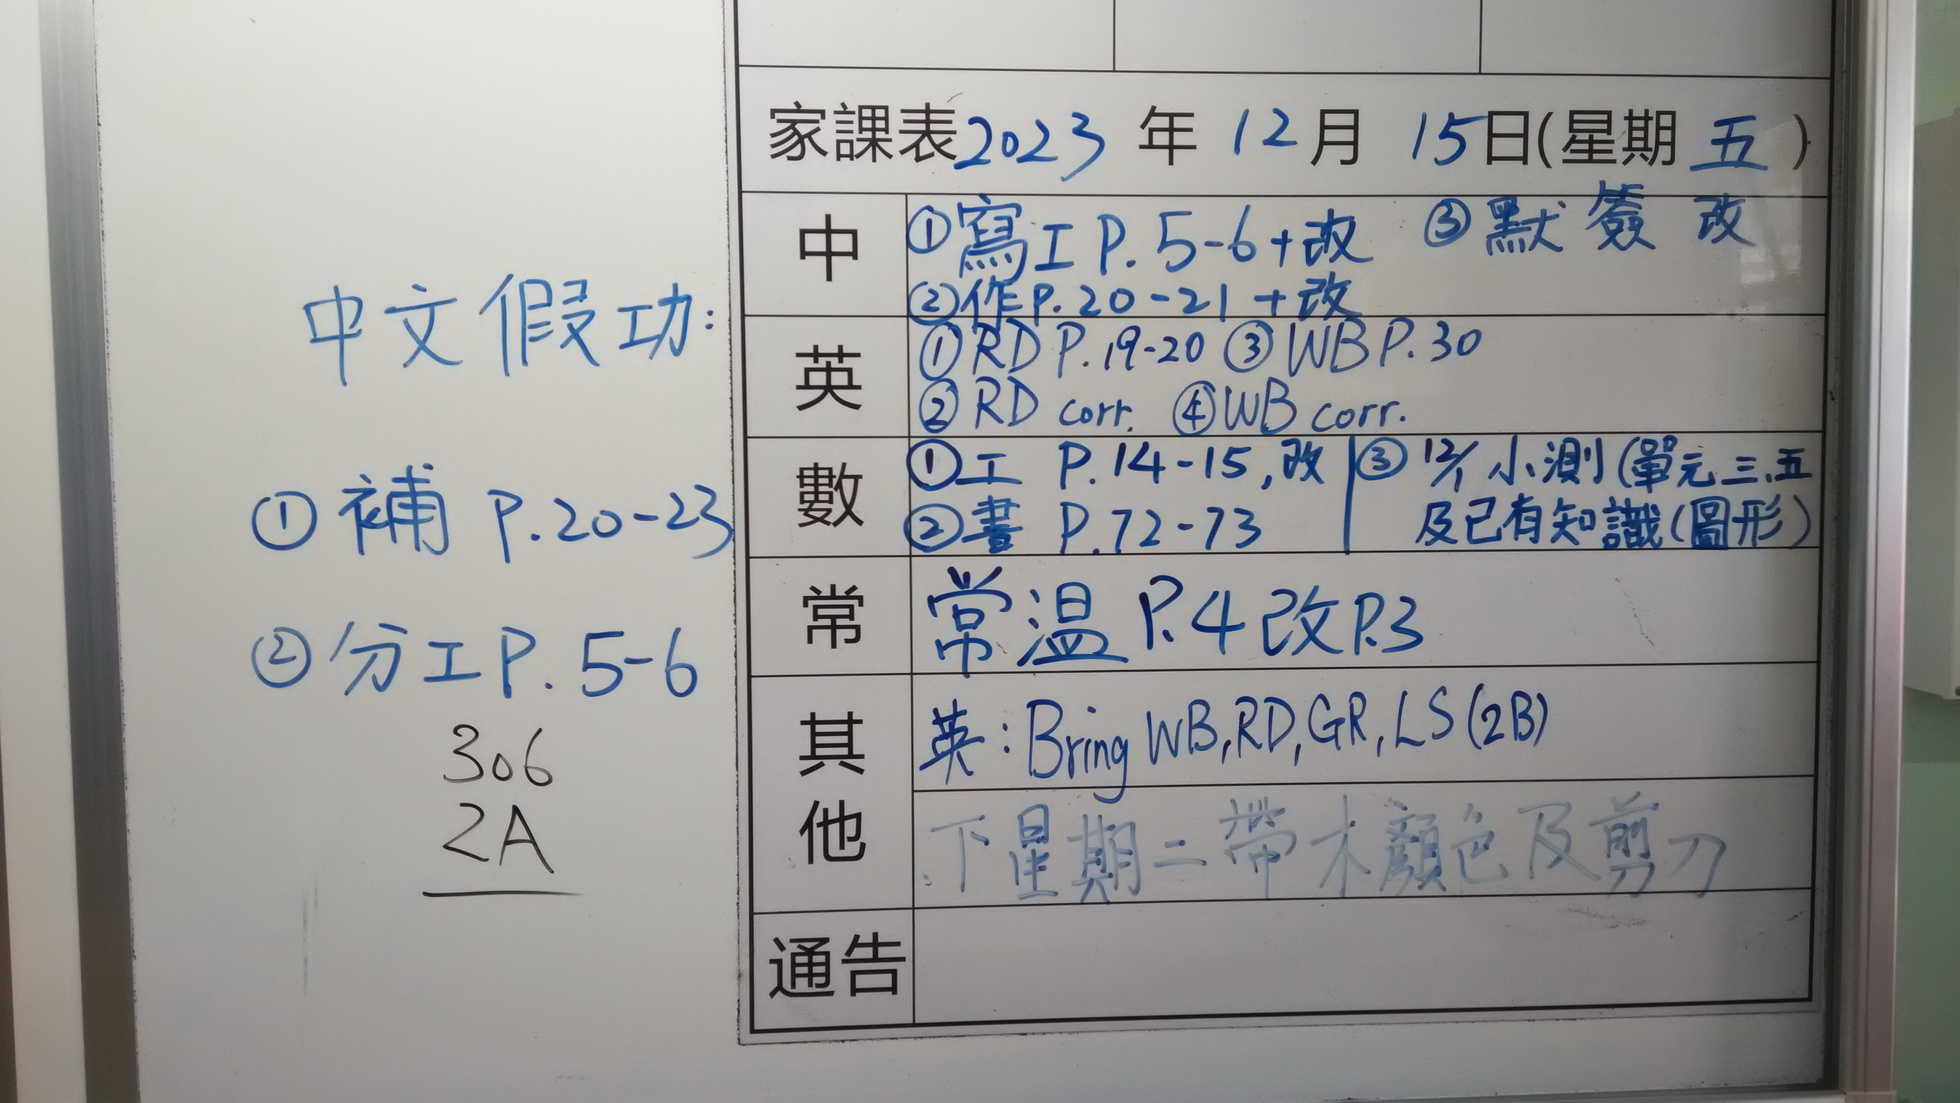 家課表2023 年 12月 15日(星期 五 )
中
①寫工P.5-6+改 ③默 簽 改
②作P.20-21+改
英
①RD P.19-20 ③WB P.30
②RD corr. ④WB corr.
數
①工 P.14-15,改 ③12/1 小測(單元三、五
②書 P.72-73 及已有知識(圖形)
常
常温 P.4 改P.3
其他
英:Bring WB,RD,GR,LS(2B)
下星期二帶木顏色及剪刀
通告
中文假功:
①補 P.20-23
②分工P.5-6
306
2A